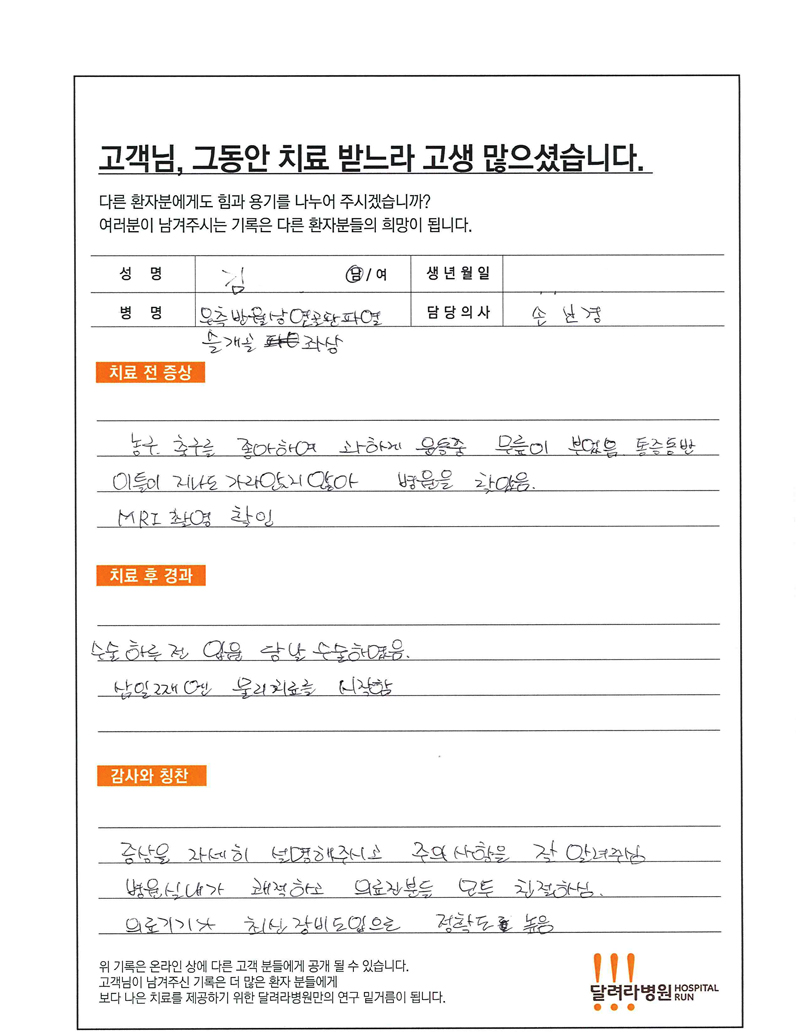 고객님, 그동안 치료 받느라 고생 많으셨습니다.
다른 환자분에게도 힘과 용기를 나누어 주시겠습니까?
여러분이 남겨주시는 기록은 다른 환자분들의 희망이 됩니다.
성 명 김 남/여 생년월일
병 명 우측방월상연골판파열 담당의사 손
슬개골 좌상
치료 전 증상
농구. 축구를 좋아하여 과하게 운동중 무릎이 부었음 통증동반
이틀이 지나도 가라앉지않아 병원을 찾았음.
MRI 촬영 확인
치료 후 경과
수술 하루 전 입원 당날 수술하였음.
삼일째엔 물리치료를 시작함
감사와 칭찬
증상을 자세히 설명해주시고 주의사항을 잘 알려주심
병원실내가 쾌적하고 의료진분들 모두 친절하심.
의료기기가 최신장비도입으로 정확도 높음
위 기록은 온라인 상에 다른 고객 분들에게 공개 될 수 있습니다.
고객님이 남겨주신 기록은 더 많은 환자 분들에게
보다 나은 치료를 제공하기 위한 달려라병원만의 연구 밑거름이 됩니다.
달려라병원 HOSPITAL RUN